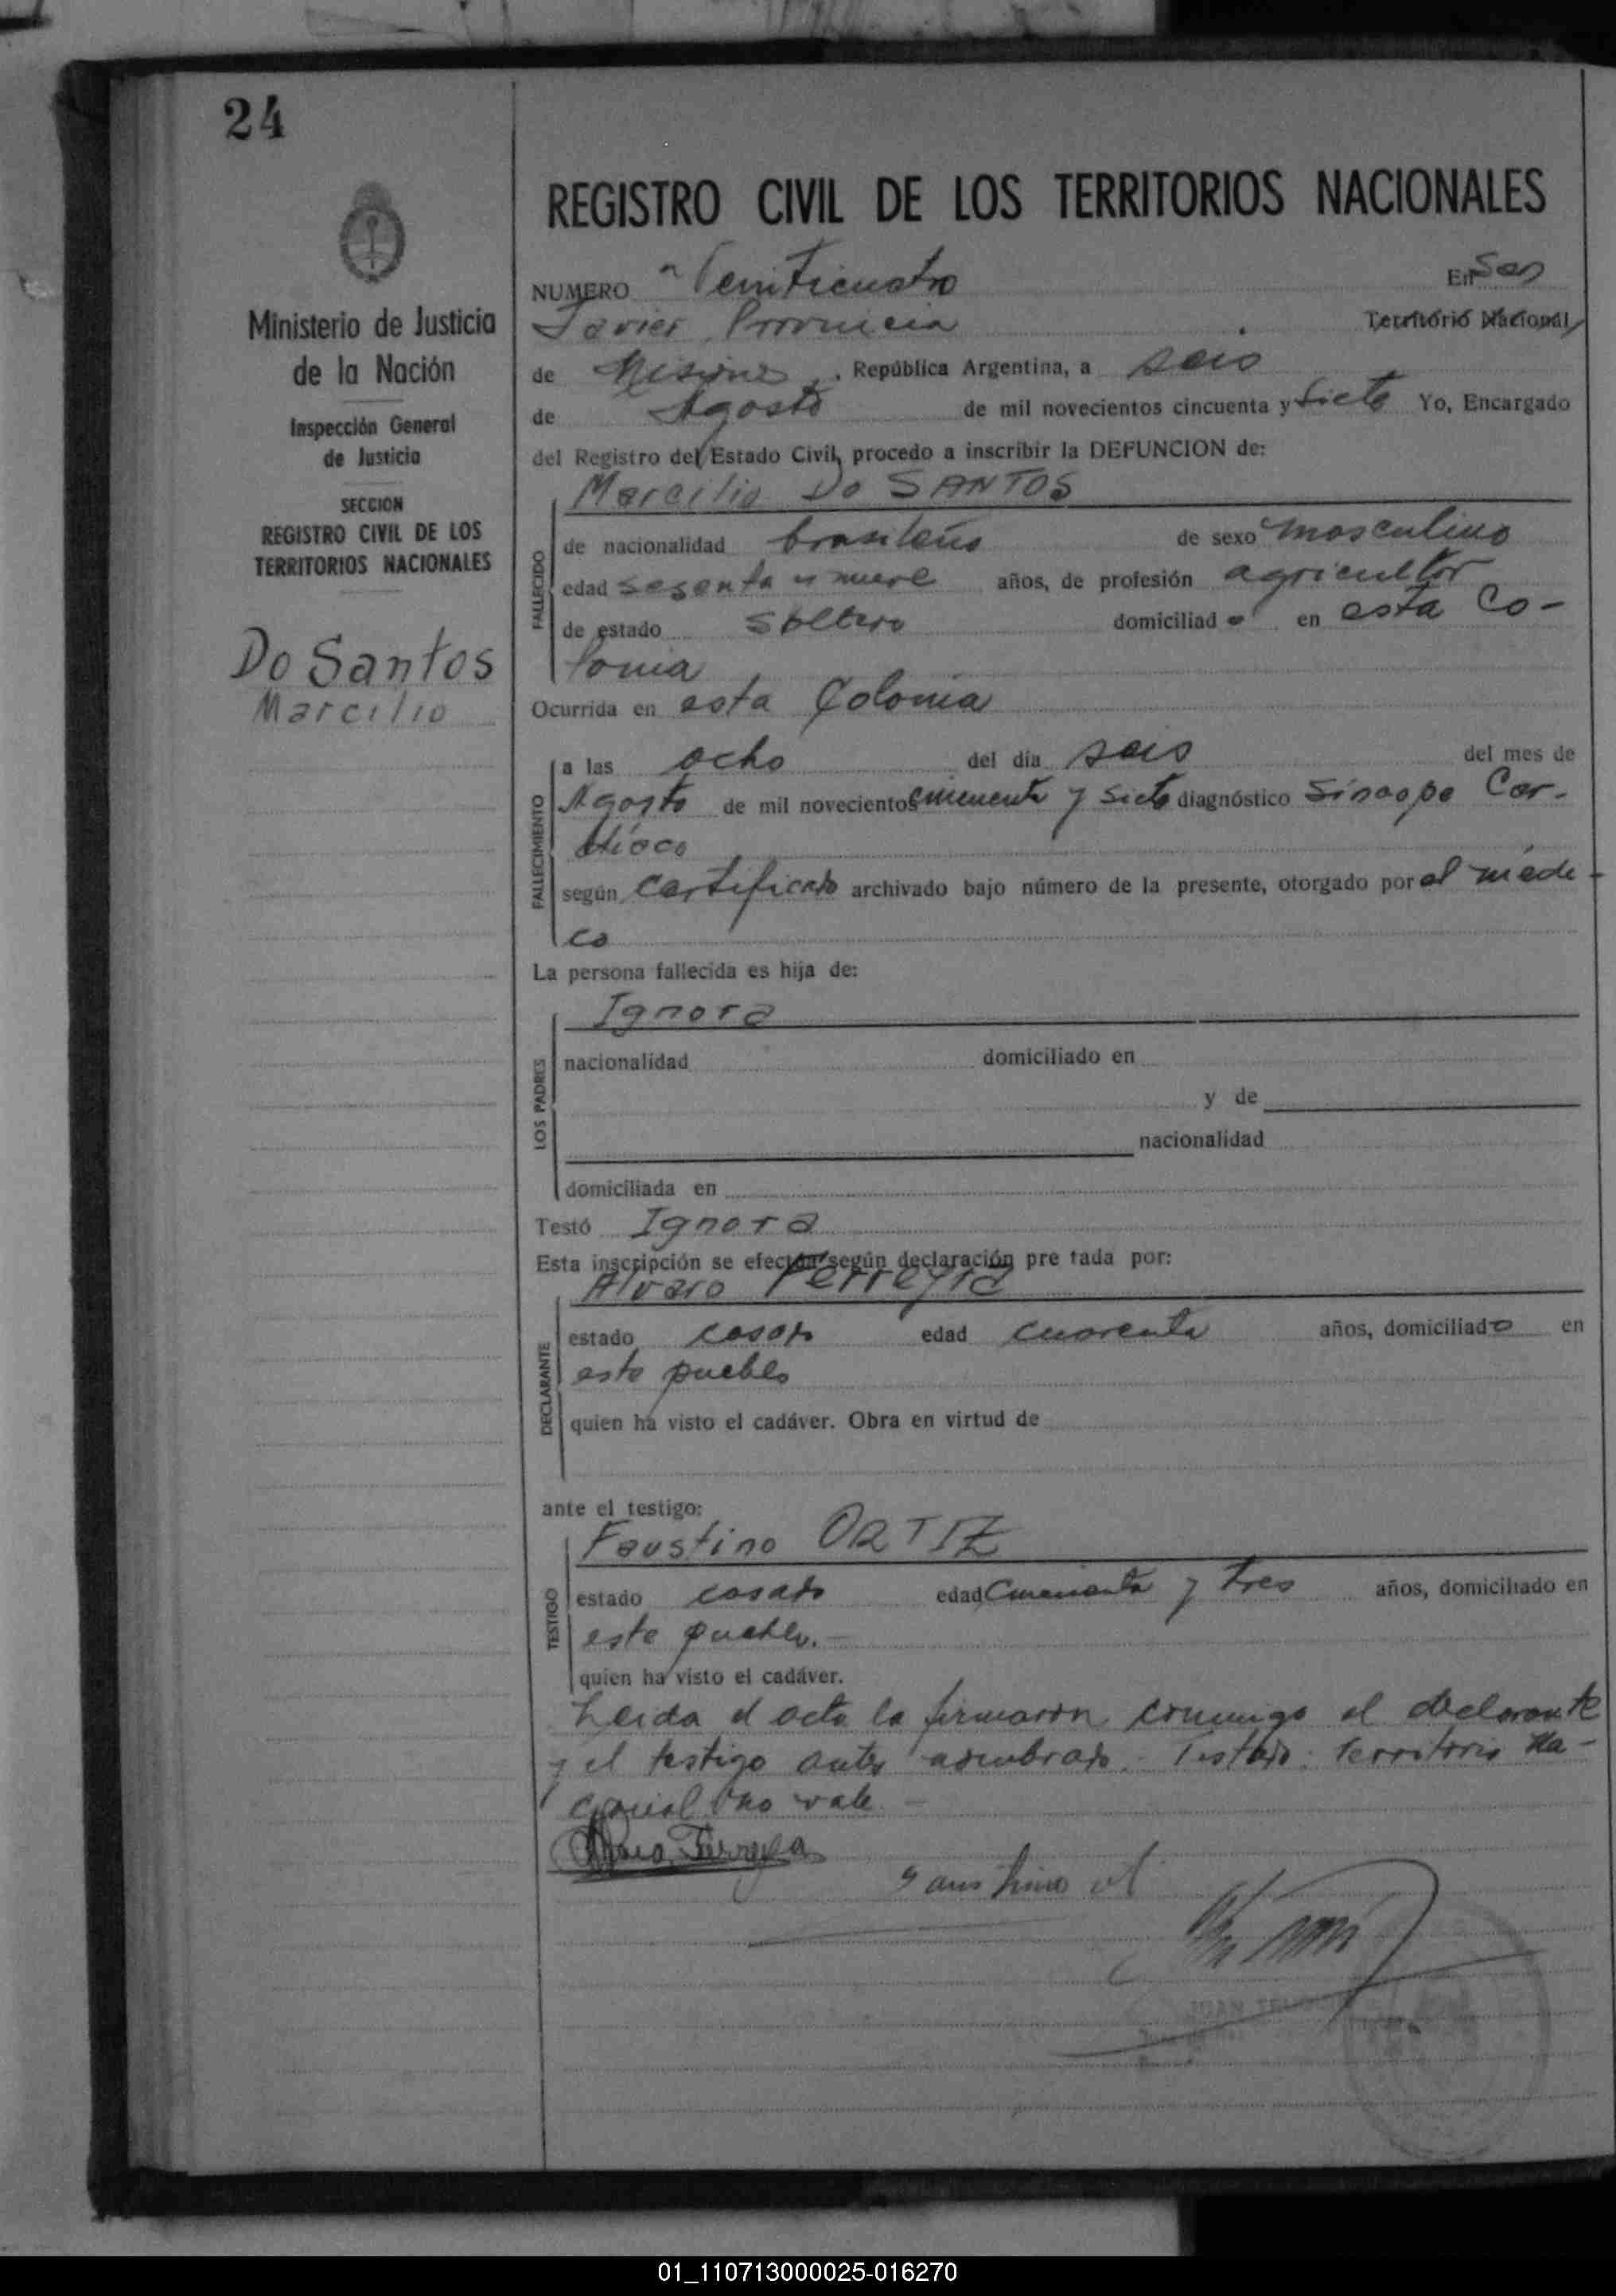 24
Ministerio de Justicia
de la Nación
Inspección General
de Justicia
SECCION
REGISTRO CIVIL DE LOS
TERRITORIOS NACIONALES
Do Santos
Marcilio
REGISTRO CIVIL DE LOS TERRITORIOS NACIONALES
NUMERO Veinticuatro En San
Javier, Provincia Territorio Nacional
de Misiones, República Argentina, a seis
de Agosto de mil novecientos cincuenta y siete Yo, Encargado
del Registro del Estado Civil, procedo a inscribir la DEFUNCION de:
Marcilio Do SANTOS
FALLECIDO
de nacionalidad brasileño de sexo masculino
edad sesenta y nueve años, de profesión agricultor
de estado soltero domiciliado en esta Co-
lonia
Ocurrida en esta Colonia
FALLECIMIENTO
a las ocho del día seis del mes de
Agosto de mil novecientos cincuenta y siete diagnóstico Síncope Car-
díaco
según certificado archivado bajo número de la presente, otorgado por el médi-
co
La persona fallecida es hija de:
LOS PADRES
Ignora
nacionalidad domiciliado en
y de
nacionalidad
domiciliada en
Testó Ignora
Esta inscripción se efectúa según declaración pre tada por:
DECLARANTE
Alvaro Ferreyra
estado casado edad cuarenta años, domiciliado en
este pueblo
quien ha visto el cadáver. Obra en virtud de
ante el testigo:
TESTIGO
Faustino ORTIZ
estado casado edad Cincuenta y tres años, domiciliado en
este pueblo.-
quien ha visto el cadáver.
Leida el acta la firmaron conmigo el declarante
y el testigo antes nombrado. Testado: Territorio Na-
cional no vale.-
Alvaro Ferreyra
Faustino
JUAN
01_110713000025-016270